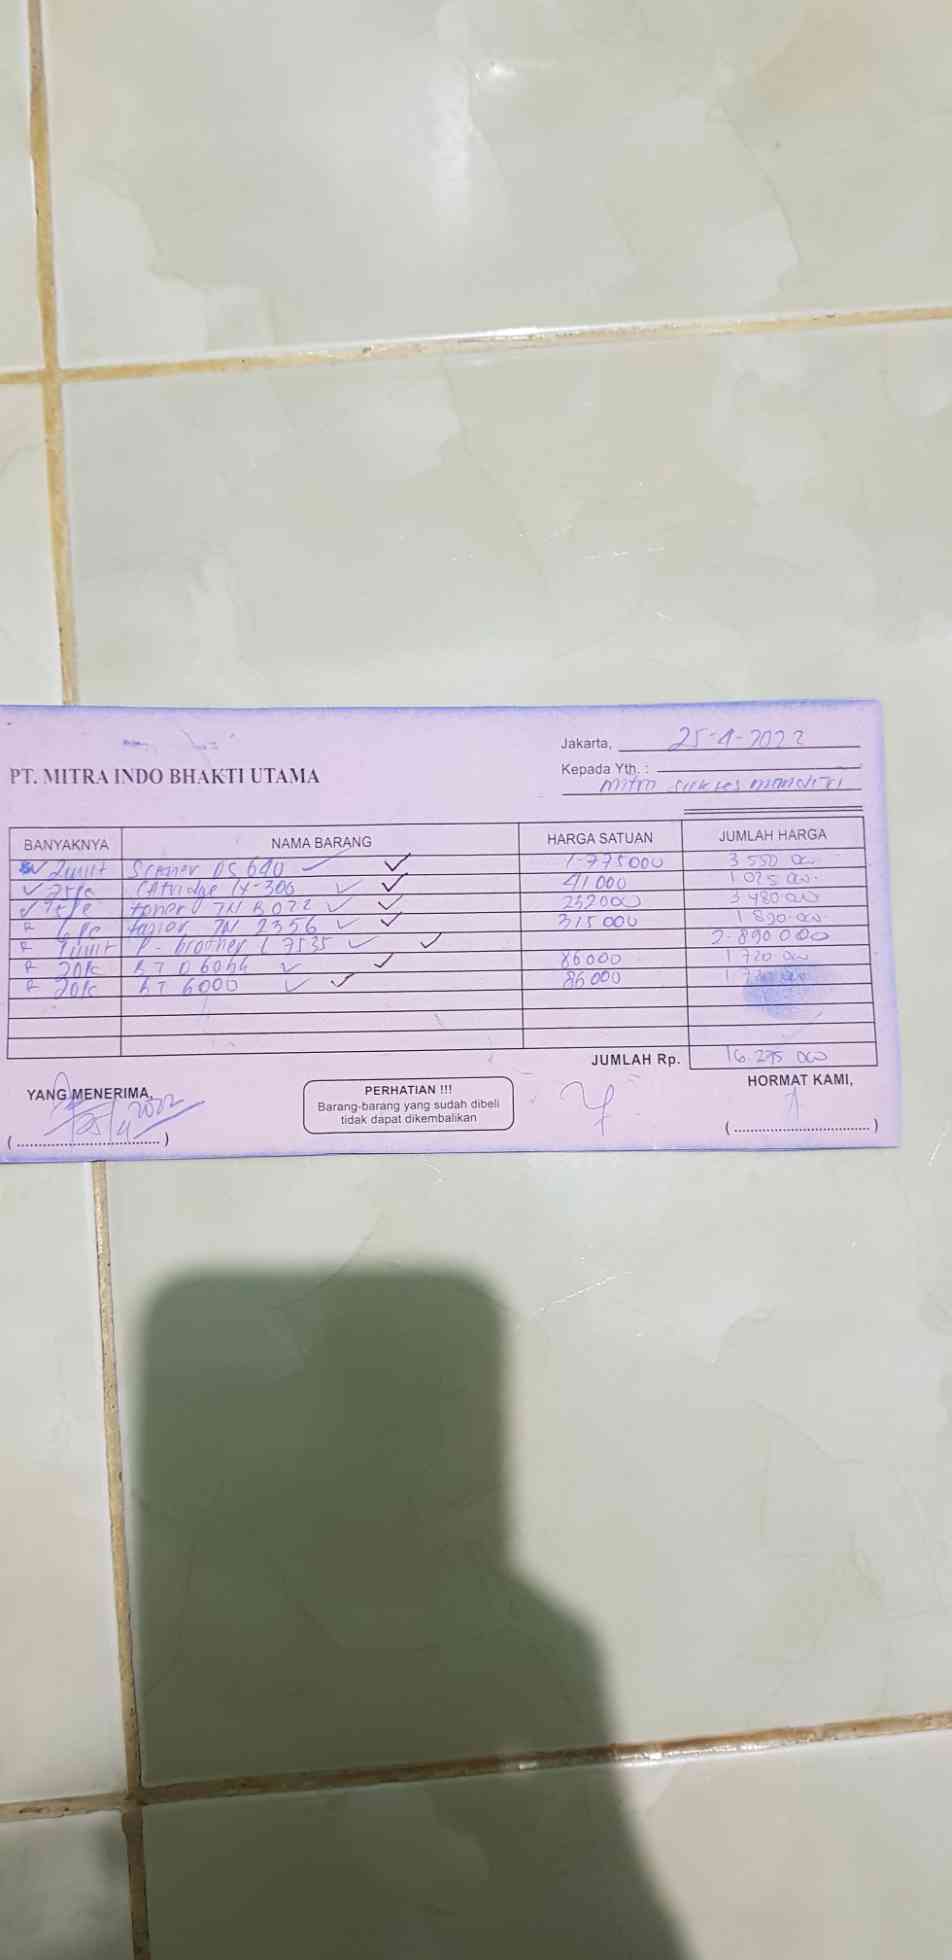 Jakarta, 25-4-2022
PT. MITRA INDO BHAKTI UTAMA
Kepada Yth. :
Mitra Sukses mandiri
BANYAKNYA NAMA BARANG HARGA SATUAN JUMLAH HARGA
2unit Scaner DS 640 1-775000 3 550 000
CAtridge LX-300 41.000 1 025 000
toner TN B022 232000 3 480.000
TN 2356 315000 1 890.000
1unit P-brother 2.890000
BT D6000 86000 1 720 000
BT 6000 86000
JUMLAH Rp. 16 275 000
YANG MENERIMA,
25/4 2022
(....................................)
PERHATIAN !!!
Barang-barang yang sudah dibeli
tidak dapat dikembalikan
HORMAT KAMI,
(..................................)